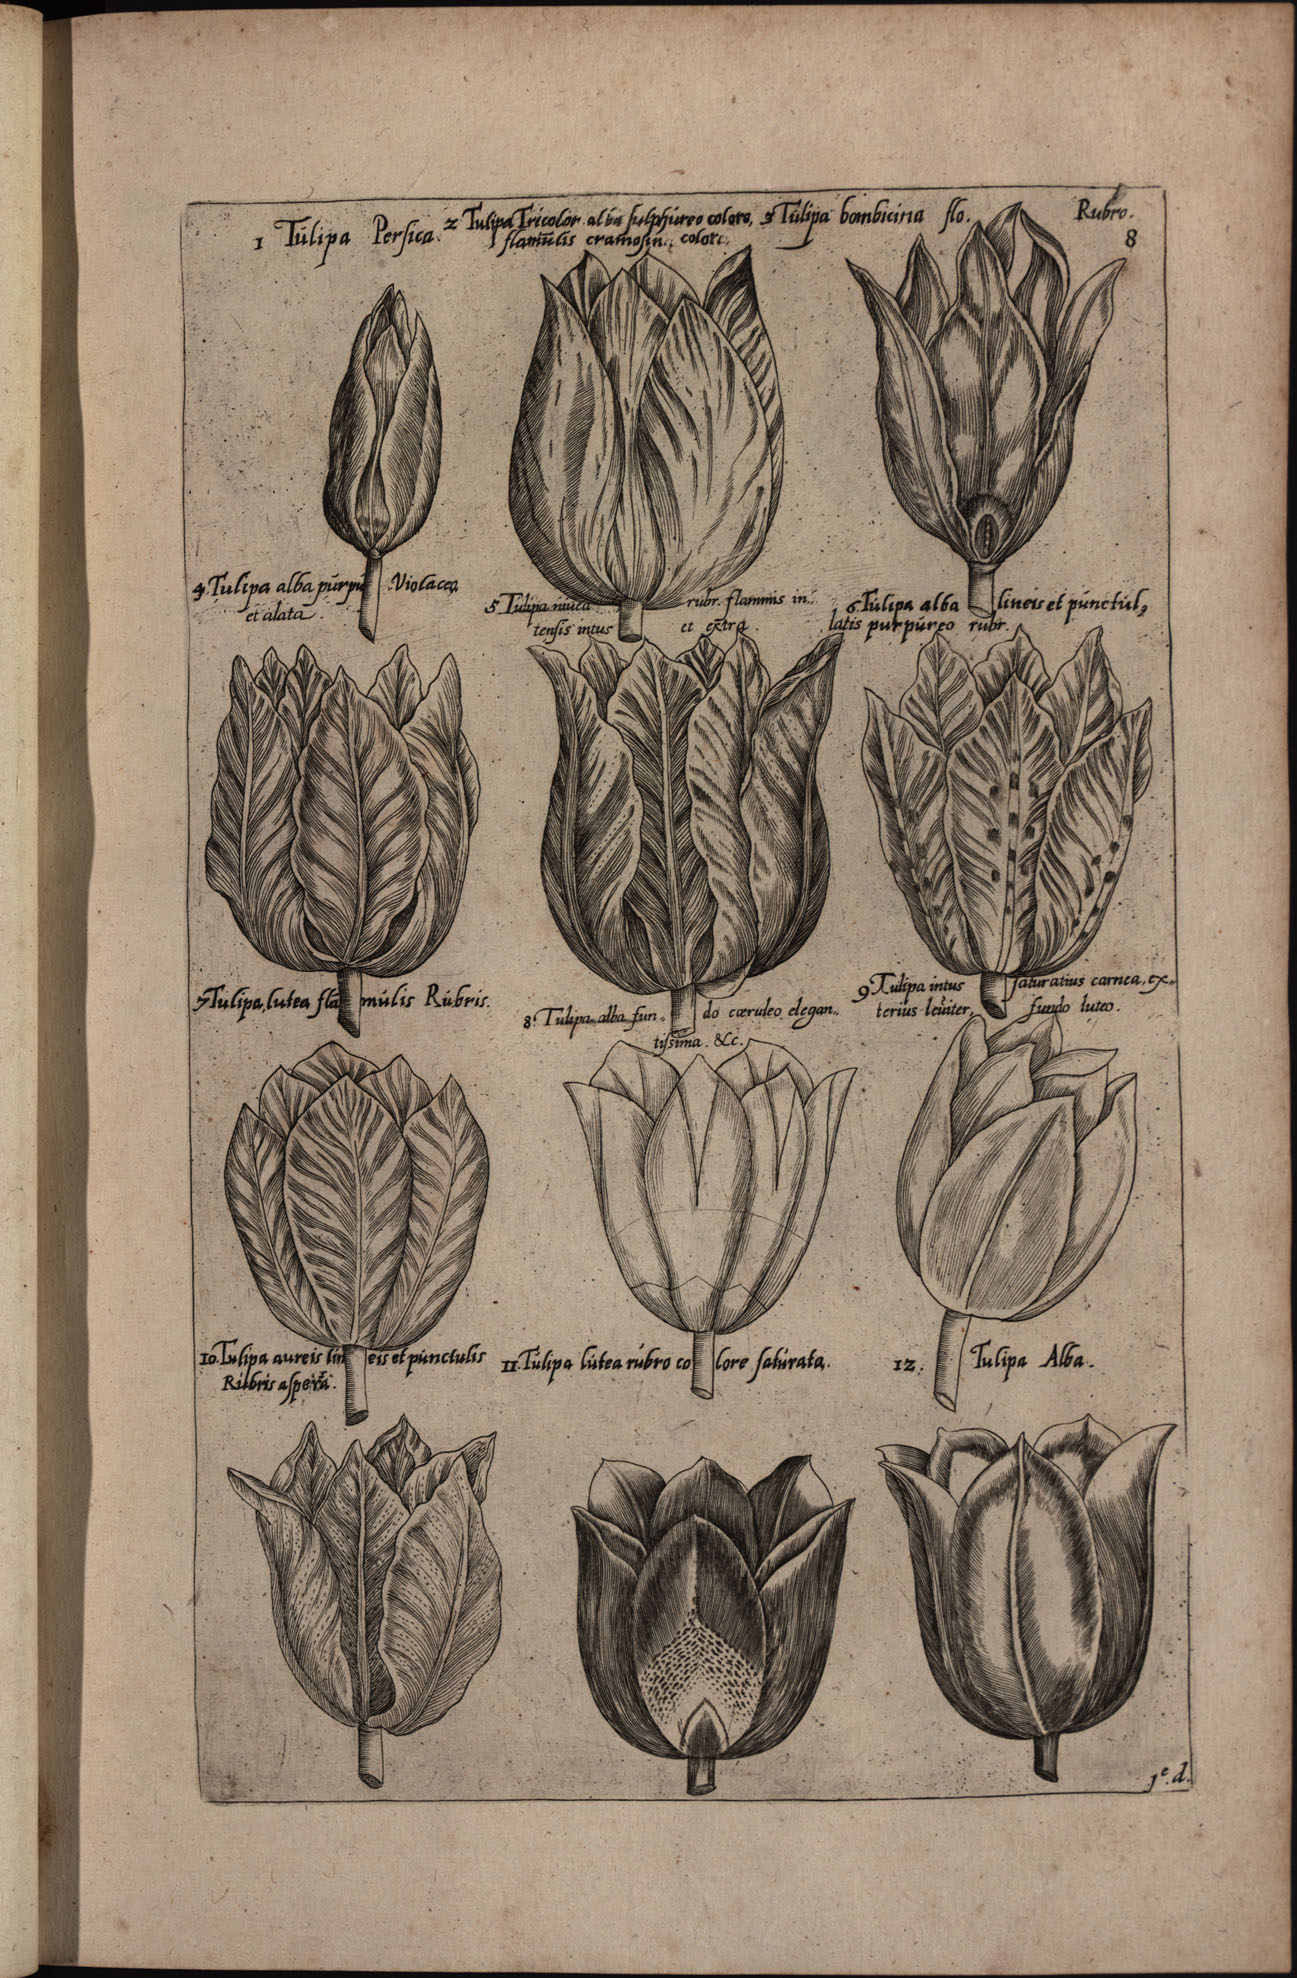 1 Tulipa Persica. 2 Tulipa Tricolor alba sulphureo colore, 3 Tulipa bombicina flo. Rubro.
flamulis cramosin. colore.
8
4. Tulipa alba purpu Violacea
et alata.
5 Tulipa niuea rubr. flammis in.
tensis intus et extra.
6. Tulipa alba lineis et punctul,
latis purpureo rubr.
7 Tulipa, lutea fla mulis Rubris.
8. Tulipa alba fun, do cæruleo elegan,
tissima. &c.
9 Tulipa intus saturatius carnea, ex,
terius leuiter, fundo luteo.
10. Tulipa aureis lin eis et punctulis
Rubris aspera.
11. Tulipa lutea rubro co lore saturata.
12. Tulipa Alba.
1e. d.